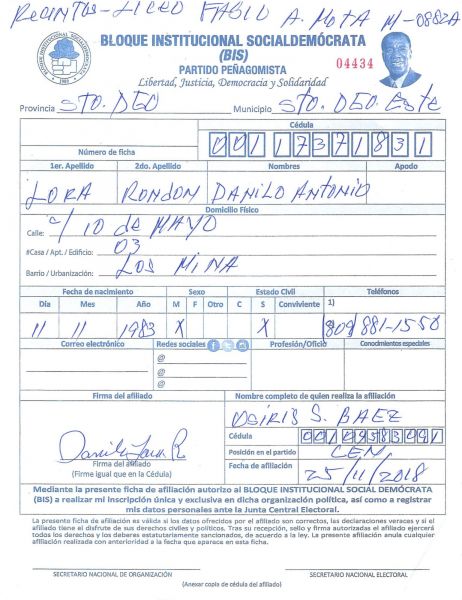 RECINTOS-LICEO FABIO A. MOTA M-0882A
BLOQUE INSTITUCIONAL SOCIALDEMÓCRATA
(BIS)
PARTIDO PEÑAGOMISTA
04434
Libertad, Justicia, Democracia y Solidaridad
Provincia STO. DGO Municipio STO. DGO. Este
Cédula
Número de ficha 00117371831
1er. Apellido 2do. Apellido Nombres Apodo
LORA RONDON DANILO ANTONIO
Domicilio Físico
Calle: c/ 10 de MAYO
#Casa / Apt. / Edificio: 03
Barrio / Urbanización: LOS MINA
Fecha de nacimiento Sexo Estado Civil Teléfonos
Día Mes Año M F Otro C S Conviviente 1)
11 11 1983 X X (809) 881-1550
Correo electrónico Redes sociales Profesión/Oficio Conocimientos especiales
@
@
@
Firma del afiliado Nombre completo de quien realiza la afiliación
OSIRIS S. BAEZ
Cédula
Posición en el partido CEN
Firma del afiliado
(Firme igual que en la Cédula)
Fecha de afiliación 25/11/2018
Mediante la presente ficha de afiliación autorizo al BLOQUE INSTITUCIONAL SOCIAL DEMÓCRATA
(BIS) a realizar mi inscripción única y exclusiva en dicha organización política, así como a registrar
mis datos personales ante la Junta Central Electoral.
La presente ficha de afiliación es válida si los datos ofrecidos por el afiliado son correctos, las declaraciones veraces y si el
afiliado tiene el disfrute de sus derechos civiles y políticos. Tras su recepción, sello y firma autorizadas el afiliado ejercerá
todos los derechos y los deberes estatutariamente sancionados, de acuerdo a la ley. La presente afiliación anula cualquier
afiliación realizada con anterioridad a la fecha que aparece en esta ficha.
SECRETARIO NACIONAL DE ORGANIZACIÓN SECRETARIO NACIONAL ELECTORAL
(Anexar copia de cédula del afiliado)